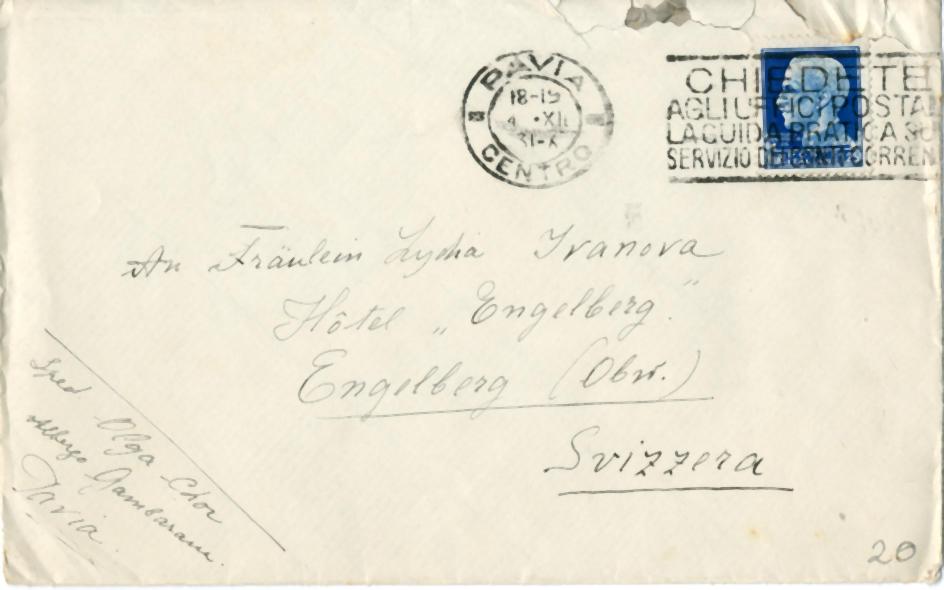 PAVIA
18-19
4 •XII
31-X
CENTRO
CHIEDETE
AGLI UFFICI POSTAL
LA GUIDA PRATICA SUL
SERVIZIO DEI CONTI CORREN
An Fräulein Lydia Ivanova
Hôtel „Engelberg"
Engelberg (Obw.)
Svizzera
Sped Olga Chor
Albergo Gambarana
Pavia.
20